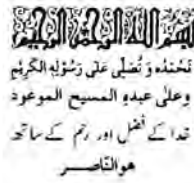 بسم الله الرحمن الرحيم
نحمده و نُصلّی علی رسوله الکریم
وعلٰی عبده المسیح الموعود
خدا کے فضل اور رحم کے ساتھ
هوالنّاصر